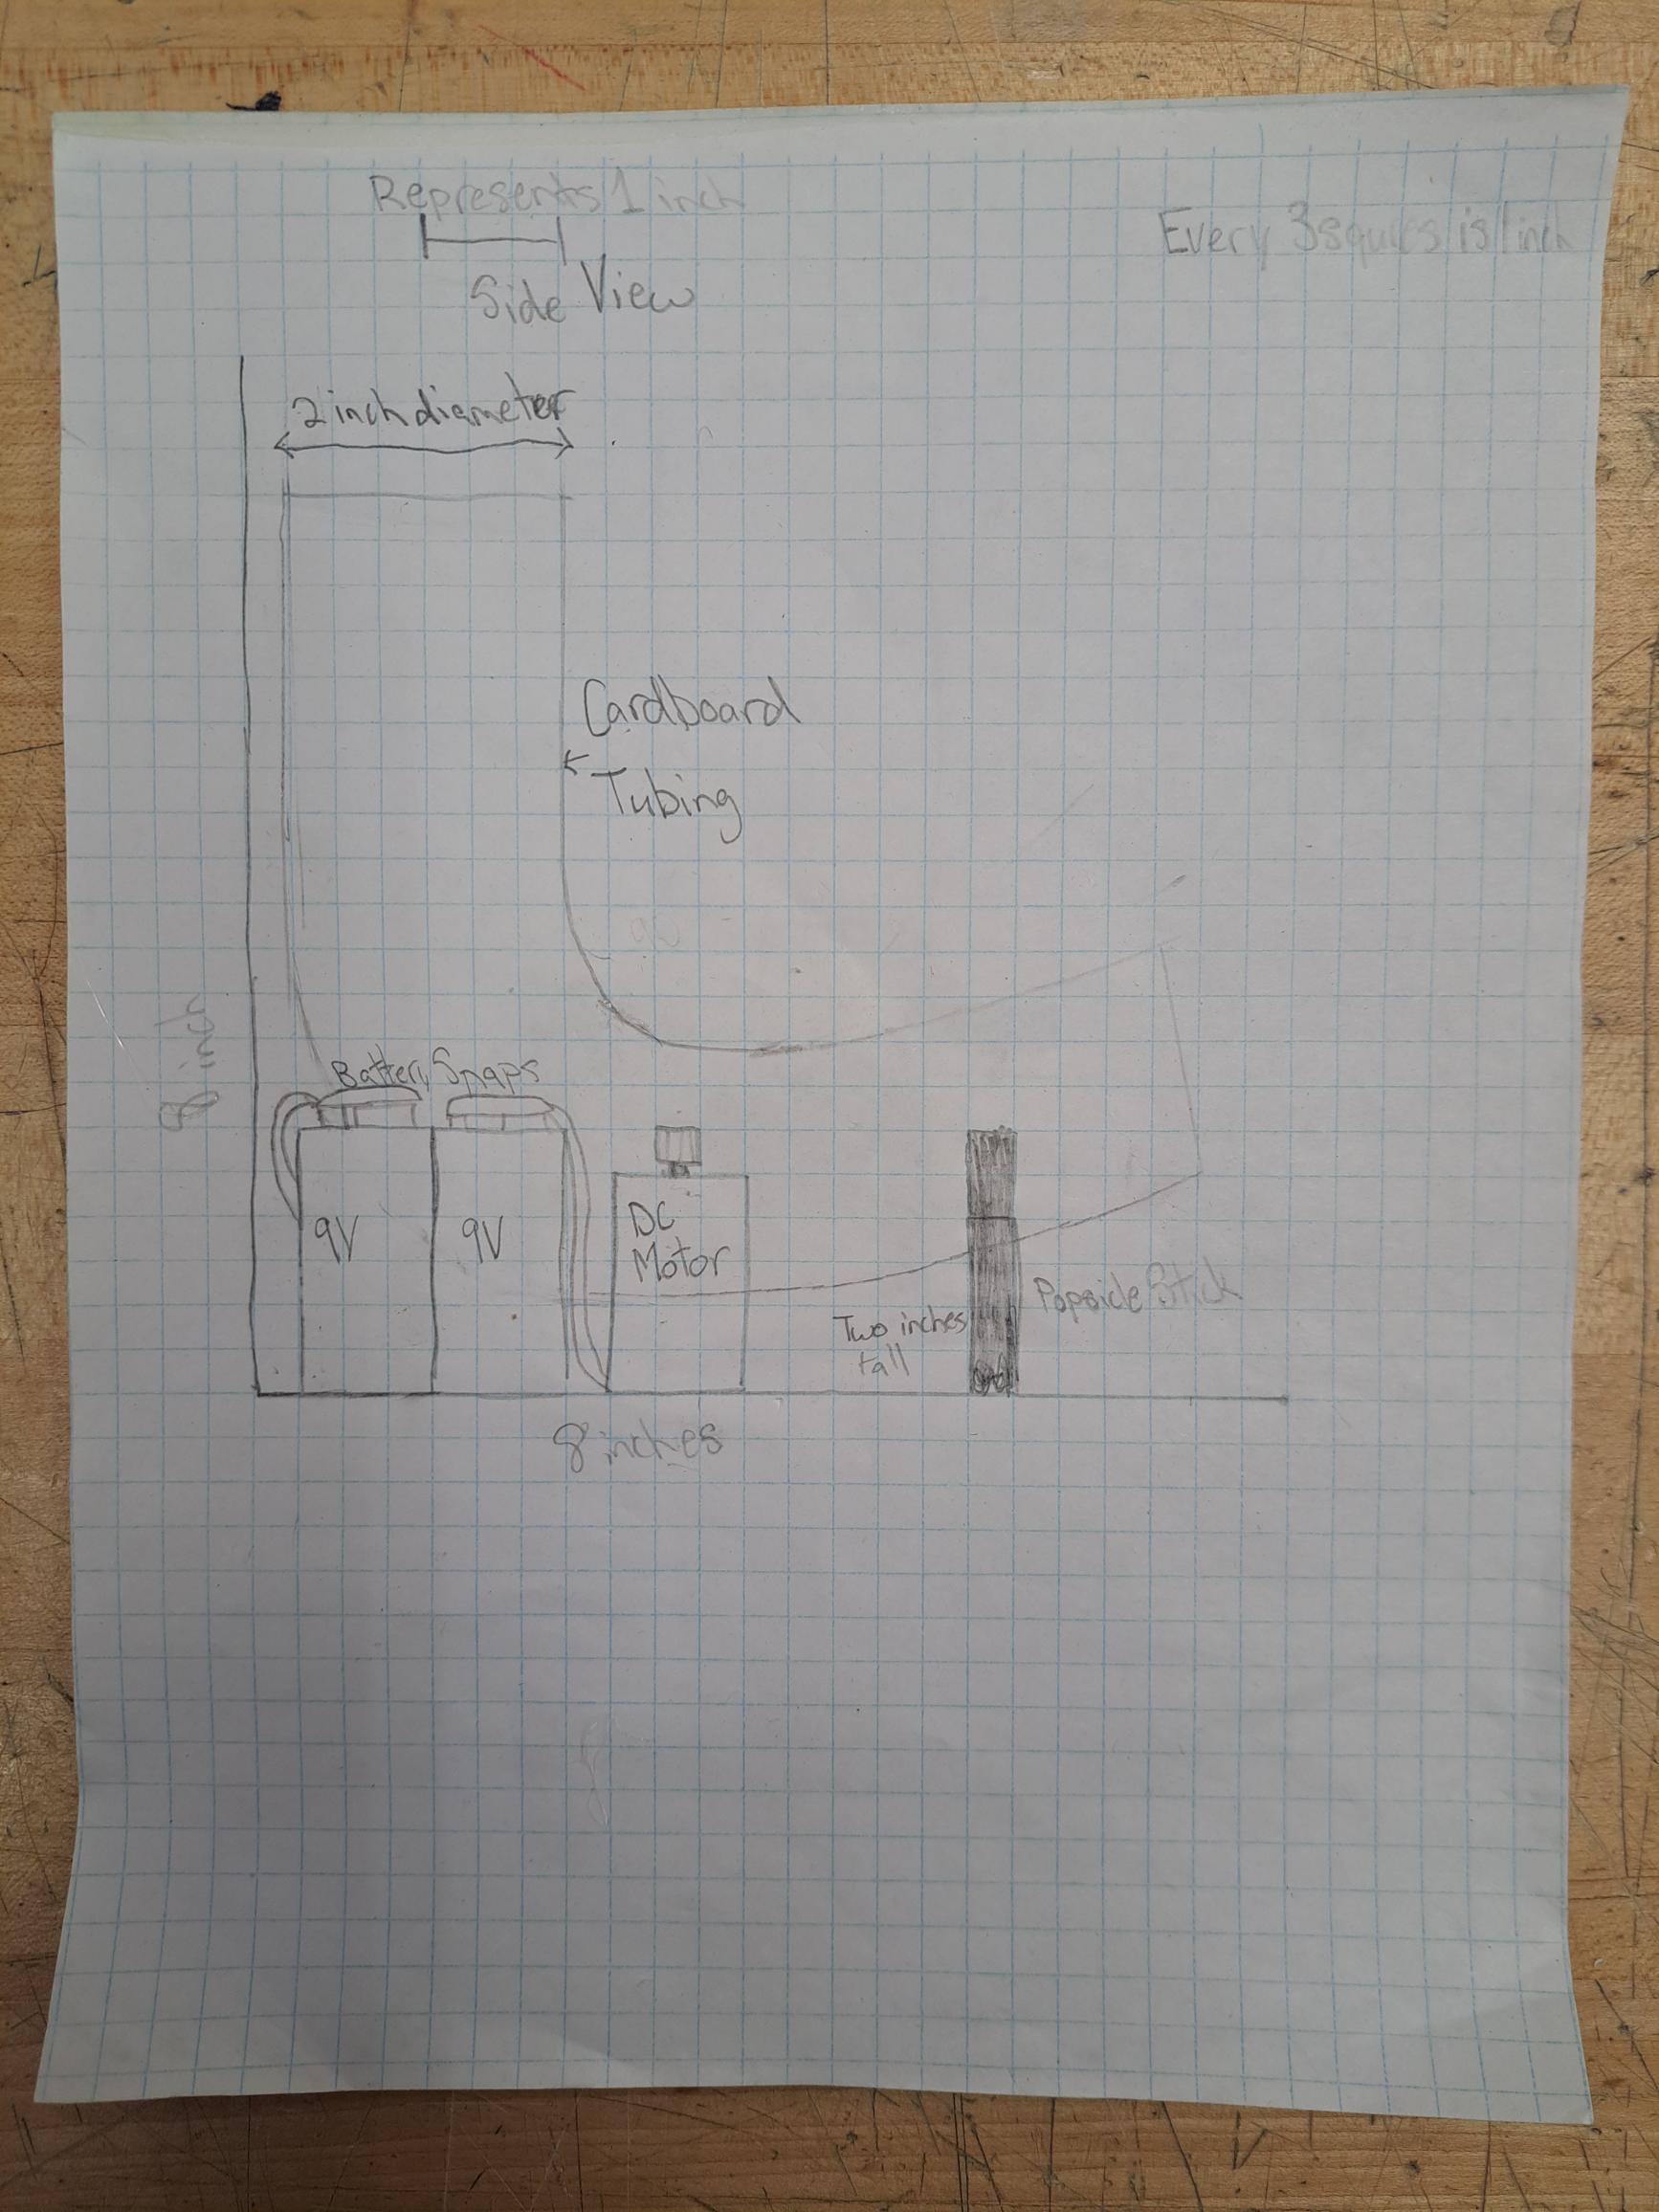 Represents 1 inch
Every 3 squrs is 1 inch
Side View
2 inch diameter
Cardboard
Tubing
8 inch
Battery Snaps
9V
9V
DC
Motor
Popsicle Stick
Two inches
tall
8 inches